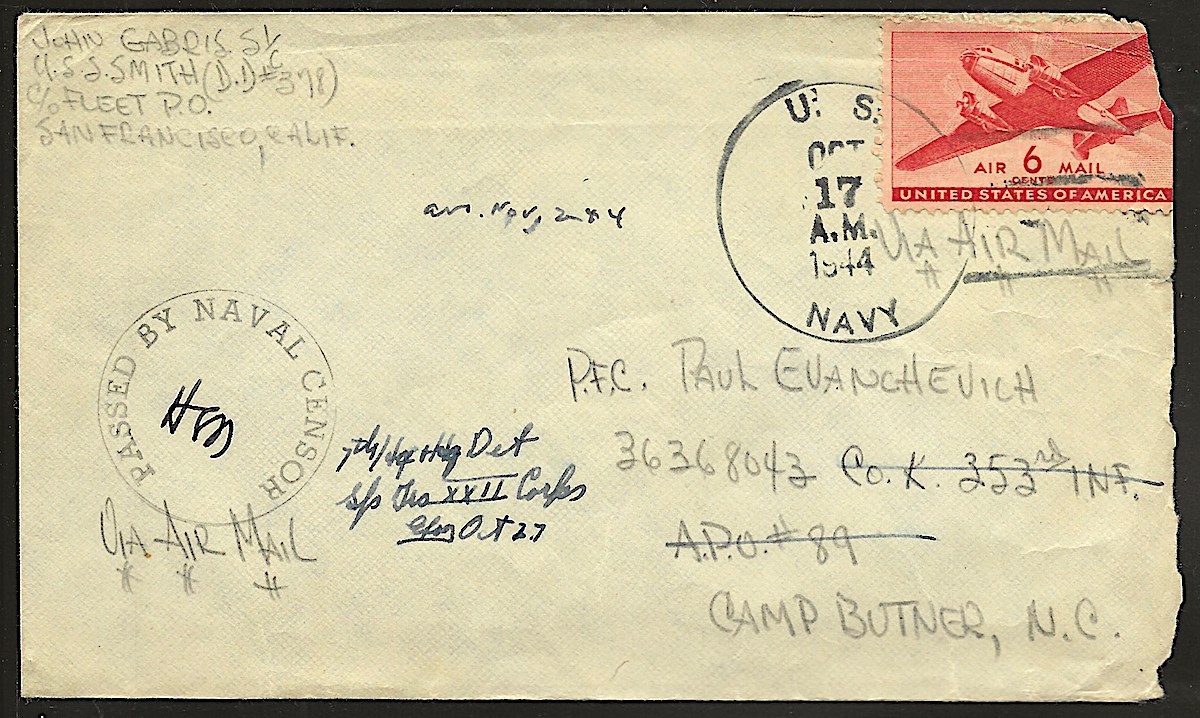 JOHN GABRIS S1/C
U.S.S. SMITH (D.D #378)
C/O FLEET P.O.
SAN FRANCISCO, CALIF.
AIR 6 MAIL
CENTS
UNITED STATES OF AMERICA
U. S.
OCT
17
A.M.
1944
NAVY
VIA AIR MAIL
Nov, 2
PASSED BY NAVAL CENSOR
P.F.C. PAUL EVANCHEVICH
36368043 CO. K. 353rd INF.
A.P.O. # 89
CAMP BUTNER, N.C.
Det
XXII Corps
Oct 27
VIA AIR MAIL